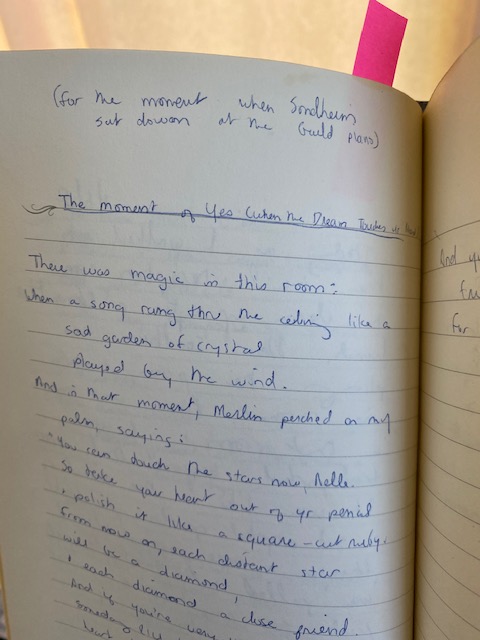 (for the moment when Sondheim
sat dowan at the Guild piano)
The moment of Yes (when the Dream Touches
There was magic in this room:
When a song rang thru the ceiling like a
sad garden of crystal
played by the wind.
And in that moment, Merlin perched on my
palm, saying:
"You can touch the stars now, Nelle.
So take your heart out of yr pencil
& polish it like a square-cut ruby.
From now on, each distant star
will be a diamond,
& each diamond a close friend.
And if you're very
Someday
And
for